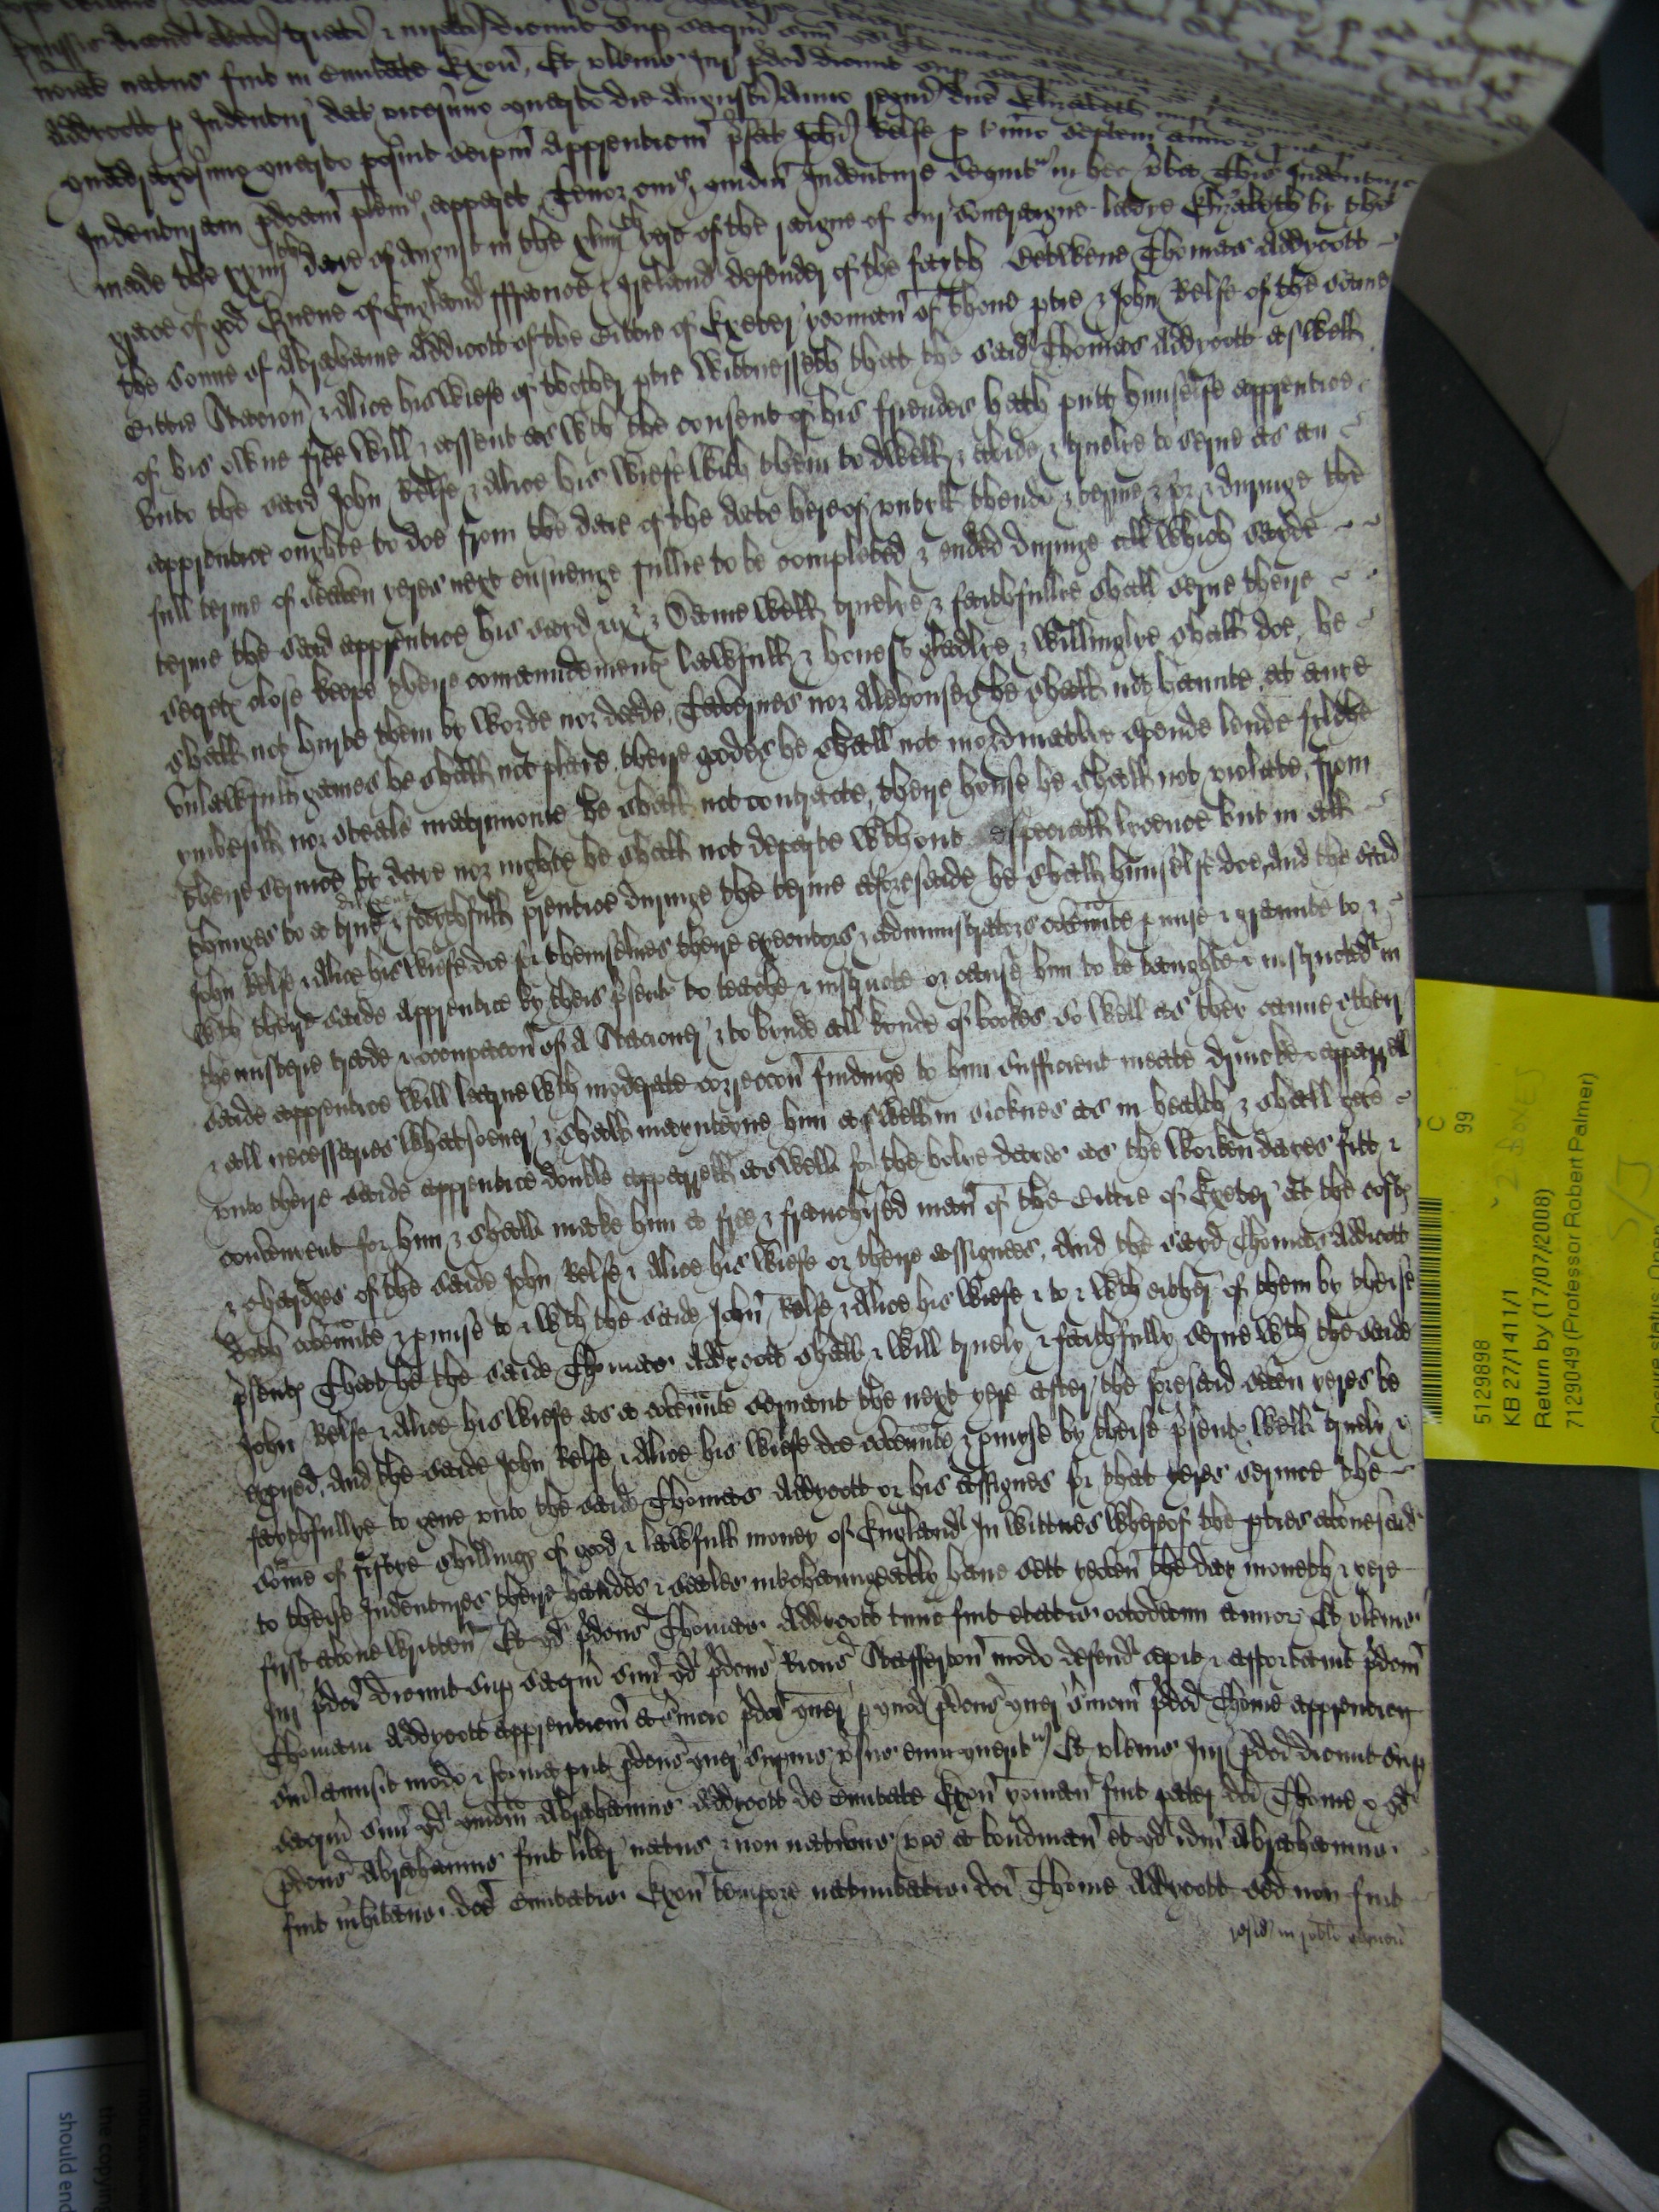 natus fuit in Civitate Exon̄. Et ulterius Jur̄ p̄d̄c̄i dicunt sup sacrm̄ suū
Addycott p Indentur̄ dat vicesimo quarto die Augusti Anno regni d̄n̄e Elizabeth
quadragesimo quarto posuit seipm̄ Apprenticiū p̄fat Joh̄i Kelse p t̄mino septem annoꝝ
Indenturam p̄dcam plenius apparet, Tenor cuius quidm̄ Indenture sequitur in hec v̄ba This Indenture
made the xxiiijth daie of August in the xliiijth yere of the raigne of our soueraigne ladye Elizabeth by the
grace of god Quene of England ffraunce & Ireland defender of the fayth Betwene Thomas Addycott
the sonne of Abrahame Addicott of the Cittie of Exeter yooman of thone ptie & John Kelse of the same
Cittie Stacion̄ & Alice his wiefe of thother ptie Wittnesseth that the said Thomas Addycott aswell
of his owne free will & assent as wth the consent of his friendes hath putt himselfe apprentice
vnto the said John Kelse & Alice his wiefe with them to dwell & abide & truelye to serue as an
apprentice oughte to doe from the daie of the date hereof vntill thende & terme & for & duringe the
full terme of seaven yeres next ensuenge fullie to be completed & ended duringe all which sayde
terme the said apprentice his sayd m̄r & Dame well truelye & faithfullye shall serue theire
secretꝭ close keepe theire comaundementꝭ lawfull & honest gladlye & willinglye shall doe, he
shall not hurte them by worde nor deede, Tavernes nor Alehouses he shall not haunte, at anye
vnlawfull games he shall not playe, theire goodes he shall not inordinatlye spende lende filche
ymbesill nor steale matrimonie he shall not contracte, theire house he shall not violate, from
theire service by daye nor nighte he shall not departe wthout especiall lycence but in all
thinges as a true diligent & faythfull prentice duringe the terme aforesaide he shall himselfe doe, And the said
John Kelse & Alice his wiefe doe for themselves theire executors & administrators covennte p mise & graunte to &
wth theire saide apprentice by theis p̄sentꝭ to teache & instructe or cause him to be taughte & instructed in
the misterie trade & occupacon̄ of A Stacioner & to bynde all kynde of bookes so well as they canne & their
saide apprentice will learne wth moderate correccon̄ findinge to him sufficient meate drincke & apparrell
& all necessaries whatsoever & shall maynteyne him aswell in sicknes as in health & shall gete
vnto theire saide apprentice double apparrell aswell for the holye dayes as the workendayes fitt &
convenient for him & shall make him a free & franchised man of the Cittie of Exeter at the costꝭ
& chardges of the saide John Kelse & Alice his wiefe or theire assignees, And the sayd Thomas Addicott
doth covennte & p mise to & wth the saide John Kelse & Alice his wiefe & to & wth either of them by theise
p̄sentꝭ That he the saide Thomas Addycott shall & will truely & faithfully serue wth the saide
John Kelse & Alice his wiefe as a covennte servant the next yere after the foresaid seaven yeres be
expired, And the saide John Kelse & Alice his wiefe doe covennte & p myse by theise p̄sentꝭ well truely &
faythfullye to geue vnto the saide Thomas Addycott or his assignes for that yeres service the
some of fiftye shillingꝭ of good & lawfull money of England In wittnes whereof the pties aboue said
to theise Indentures theire handes & seales interchaungeably haue sett yeaven the day moneth & yere
first aboue written Et qd p̄dcus Thomas Addycott tunc fuit etatis octodecim annoꝝ Et ulterius
Jur̄ p̄dc̄i dicunt sup sacrm̄ suū qd p̄dcus Ricus Stafferton̄ modo defend cepit & asportavit p̄dcm̄
Thomam Addycott apprenticiū & s̄vicio p̄dci quer̄ p quod p̄dcus quer̄ s̄viciū p̄dci Thome apprenticij
sui amisit modo & forma put p̄dcus quer̄ superius v̄sus eum queritur Et ulterius Jur̄ p̄dc̄i dicunt sup
sacrm̄ suū qd quidm̄ Abrahamus Addycott de Civitate Exon̄ yoman fuit pater dc̄i Thome & qd
p̄dcus Abrahamus fuit liber natus & non nativus vos a bondman et qd idm̄ Abrahamus
fuit inhitans dce Civitatis Exon̄ tempore nativitatis dc̄i Thome Addycott sed non fuit
5129898
KB 27/1411/1
Return by (17/07/2008)
7129049 (Professor Robert Palmer)
2 BOXES
S/J
C
99
Closure status: Open
the copying
should end